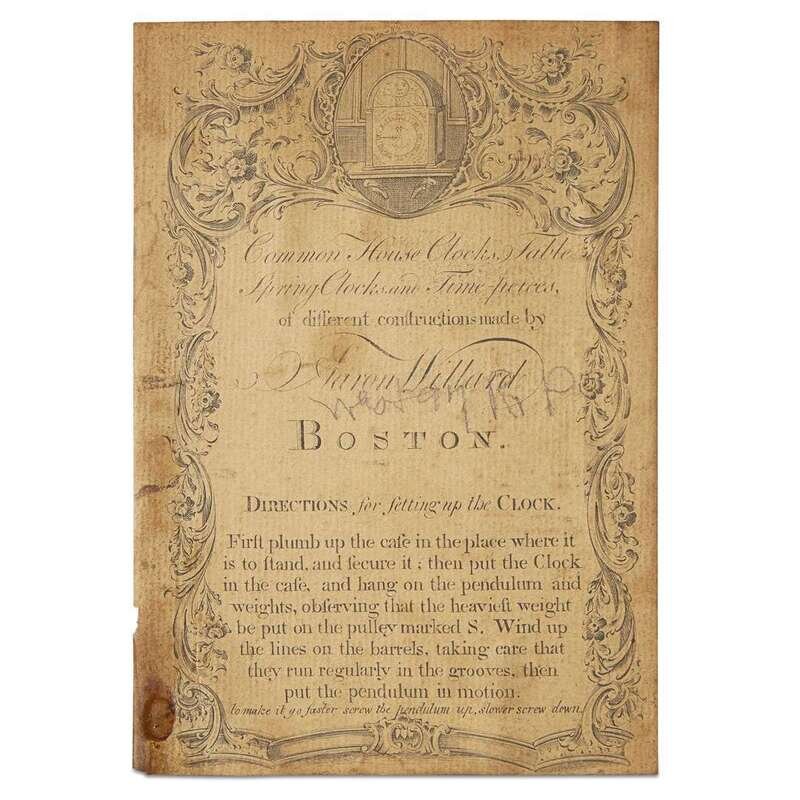 Common House Clocks, Table
Spring Clocks and Time-peices,
of different conſtructions made by
Aaron Willard
BOSTON.
DIRECTIONS for ſetting up the CLOCK.
Firſt plumb up the caſe in the place where it
is to ſtand, and ſecure it; then put the Clock
in the caſe, and hang on the pendulum and
weights, obſerving that the heavieſt weight
be put on the pulley marked S. Wind up
the lines on the barrels, taking care that
they run regularly in the grooves, then
put the pendulum in motion.
to make it go faster screw the pendulum up, slower screw down.